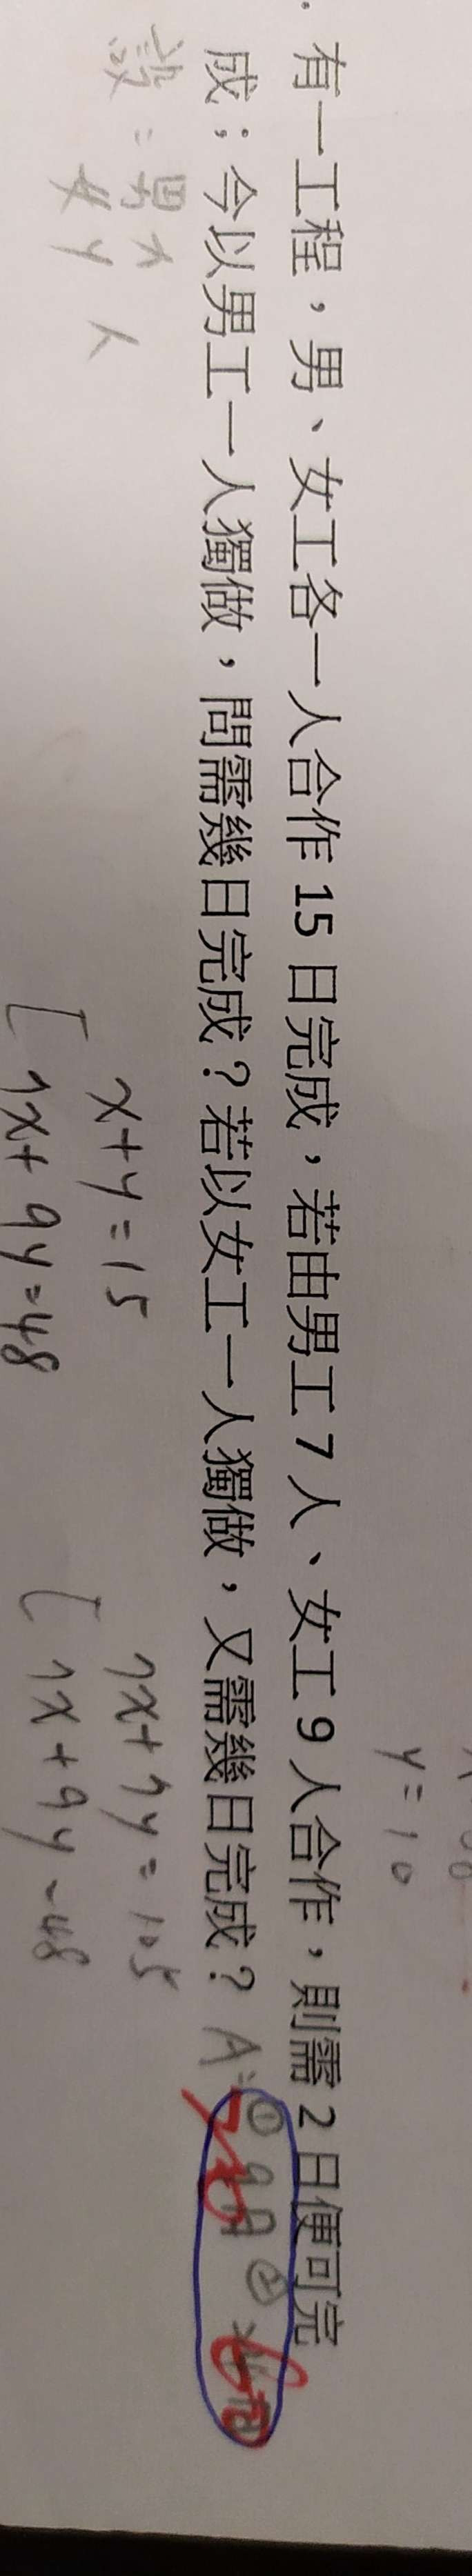 y=10
有一工程，男、女工各一人合作 15 日完成，若由男工 7 人、女工 9 人合作，則需 2 日便可完
成；今以男工一人獨做，問需幾日完成？若以女工一人獨做，又需幾日完成？ A: ① 9日 ②
設：男 x 人
女 y
x+y=15
7x+9y=48
7x+7y=105
7x+9y=48